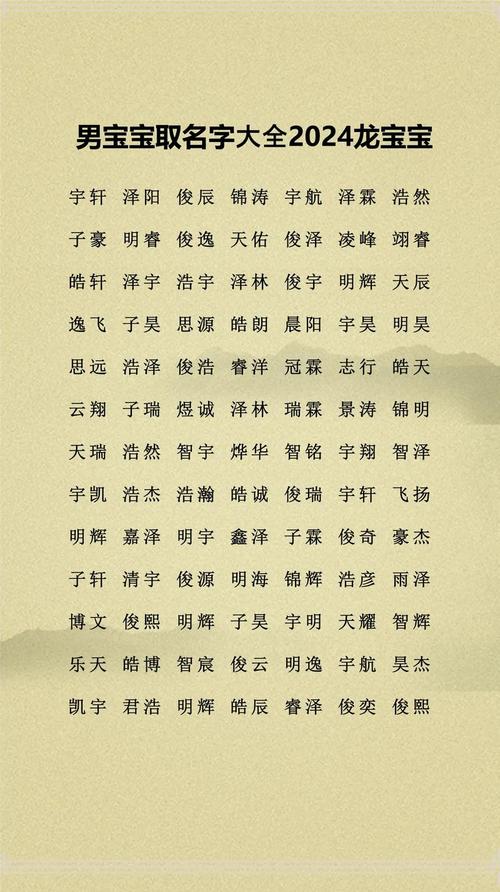 男宝宝取名字大全2024龙宝宝
宇轩 泽阳 俊辰 锦涛 宇航 泽霖 浩然
子豪 明睿 俊逸 天佑 俊泽 凌峰 翊睿
皓轩 泽宇 浩宇 泽林 俊宇 明辉 天辰
逸飞 子昊 思源 皓朗 晨阳 宇昊 明昊
思远 浩泽 俊浩 睿洋 冠霖 志行 皓天
云翔 子瑞 煜诚 泽林 瑞霖 景涛 锦明
天瑞 浩然 智宇 烨华 智铭 宇翔 智泽
宇凯 浩杰 浩瀚 皓诚 俊瑞 宇轩 飞扬
明辉 嘉泽 明宇 鑫泽 子霖 俊奇 豪杰
子轩 清宇 俊源 明海 锦辉 浩彦 雨泽
博文 俊熙 明辉 子昊 宇明 天耀 智辉
乐天 皓博 智宸 俊云 明逸 宇航 昊杰
凯宇 君浩 明辉 皓辰 睿泽 俊奕 俊熙